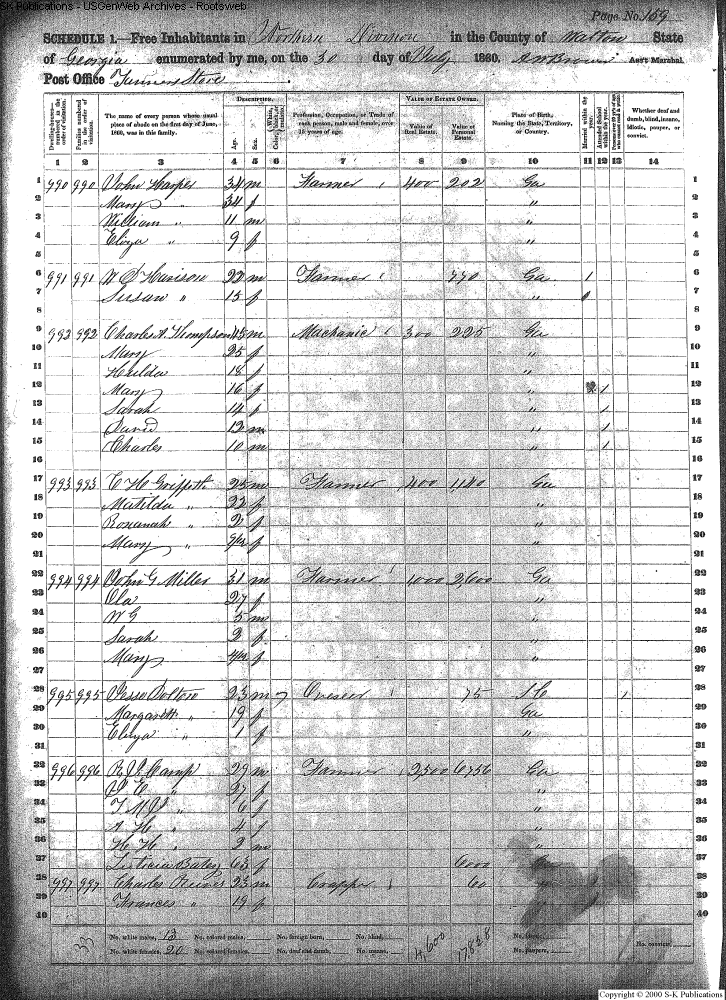 S-K Publications - USGenWeb Archives - Rootsweb
Page No. 159
SCHEDULE 1.—Free Inhabitants in Northern Division in the County of Walton State
of Georgia enumerated by me, on the 30 day of July 1860. A N Brown Ass't Marshal.
Post Office Tanners Store
Dwelling-houses—numbered in the order of visitation.
Families numbered in the order of visitation.
The name of every person whose usual place of abode on the first day of June, 1860, was in this family.
DESCRIPTION.
Age.
Sex.
Color, White, black, or mulatto.
Profession, Occupation, or Trade of each person, male and female, over 15 years of age.
VALUE OF ESTATE OWNED.
Value of Real Estate.
Value of Personal Estate.
Place of Birth, Naming the State, Territory, or Country.
Married within the year.
Attended School within the year.
Whether deaf and dumb, blind, insane, idiotic, pauper, or convict.
1 2 3 4 5 6 7 8 9 10 11 12 13 14
1 990 990 John Harper 34 m Farmer 400 202 Ga 1
2 Mary " 34 f " 2
3 William " 11 m " 3
4 Eliza " 9 f " 4
5 5
6 991 991 W S Harison 22 m Farmer 770 Ga 1 6
7 Susan " 15 f " 7
8 8
9 992 992 Charles A. Thompson 45 m Machanic 300 225 Ga 9
10 Mary 25 f " 10
11 Hulda 18 f " 11
12 Mary 16 f " 1 12
13 Sarah 14 f " 1 13
14 David 12 m " 1 14
15 Charles 10 m " 1 15
16 16
17 993 993 C H Griffeth 25 m Farmer 400 1,140 Ga 17
18 Matilda " 22 f " 18
19 Roxanah " 2 f " 19
20 Mary " f " 20
21 21
22 994 994 John G Miller 31 m Farmer 1000 2,600 Ga 22
23 27 f " 23
24 W G 5 m " 24
25 Sarah 2 f " 25
26 Mary f " 26
27 27
28 995 995 Jesse Bolton 23 m Overseer 75 S C 1 28
29 Margarett " 19 f Ga 29
30 Eliza " 1 f " 30
31 31
32 996 996 R J Camp 29 m Farmer 2,500 6756 Ga 32
33 " 27 f " 33
34 " 6 f " 34
35 A H " 4 f " 35
36 H H " 2 m " 36
37 Leticia Batey 63 f 6000 37
38 997 997 Charles 23 m Cropper 60 38
39 Frances " 19 f 39
40 40
33 No. white males, 13 No. colored males, No. foreign born, No. blind, 4,600 17,828
No. white females, 20 No. colored females, No. deaf and dumb, No. insane, No. paupers, No. convicts,
Copyright © 2000 S-K Publications